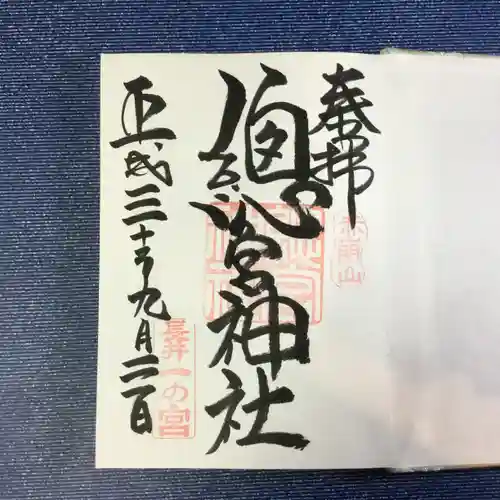 奉拝
赤崩山
總宮神社
長井一の宮
平成三十年九月二日